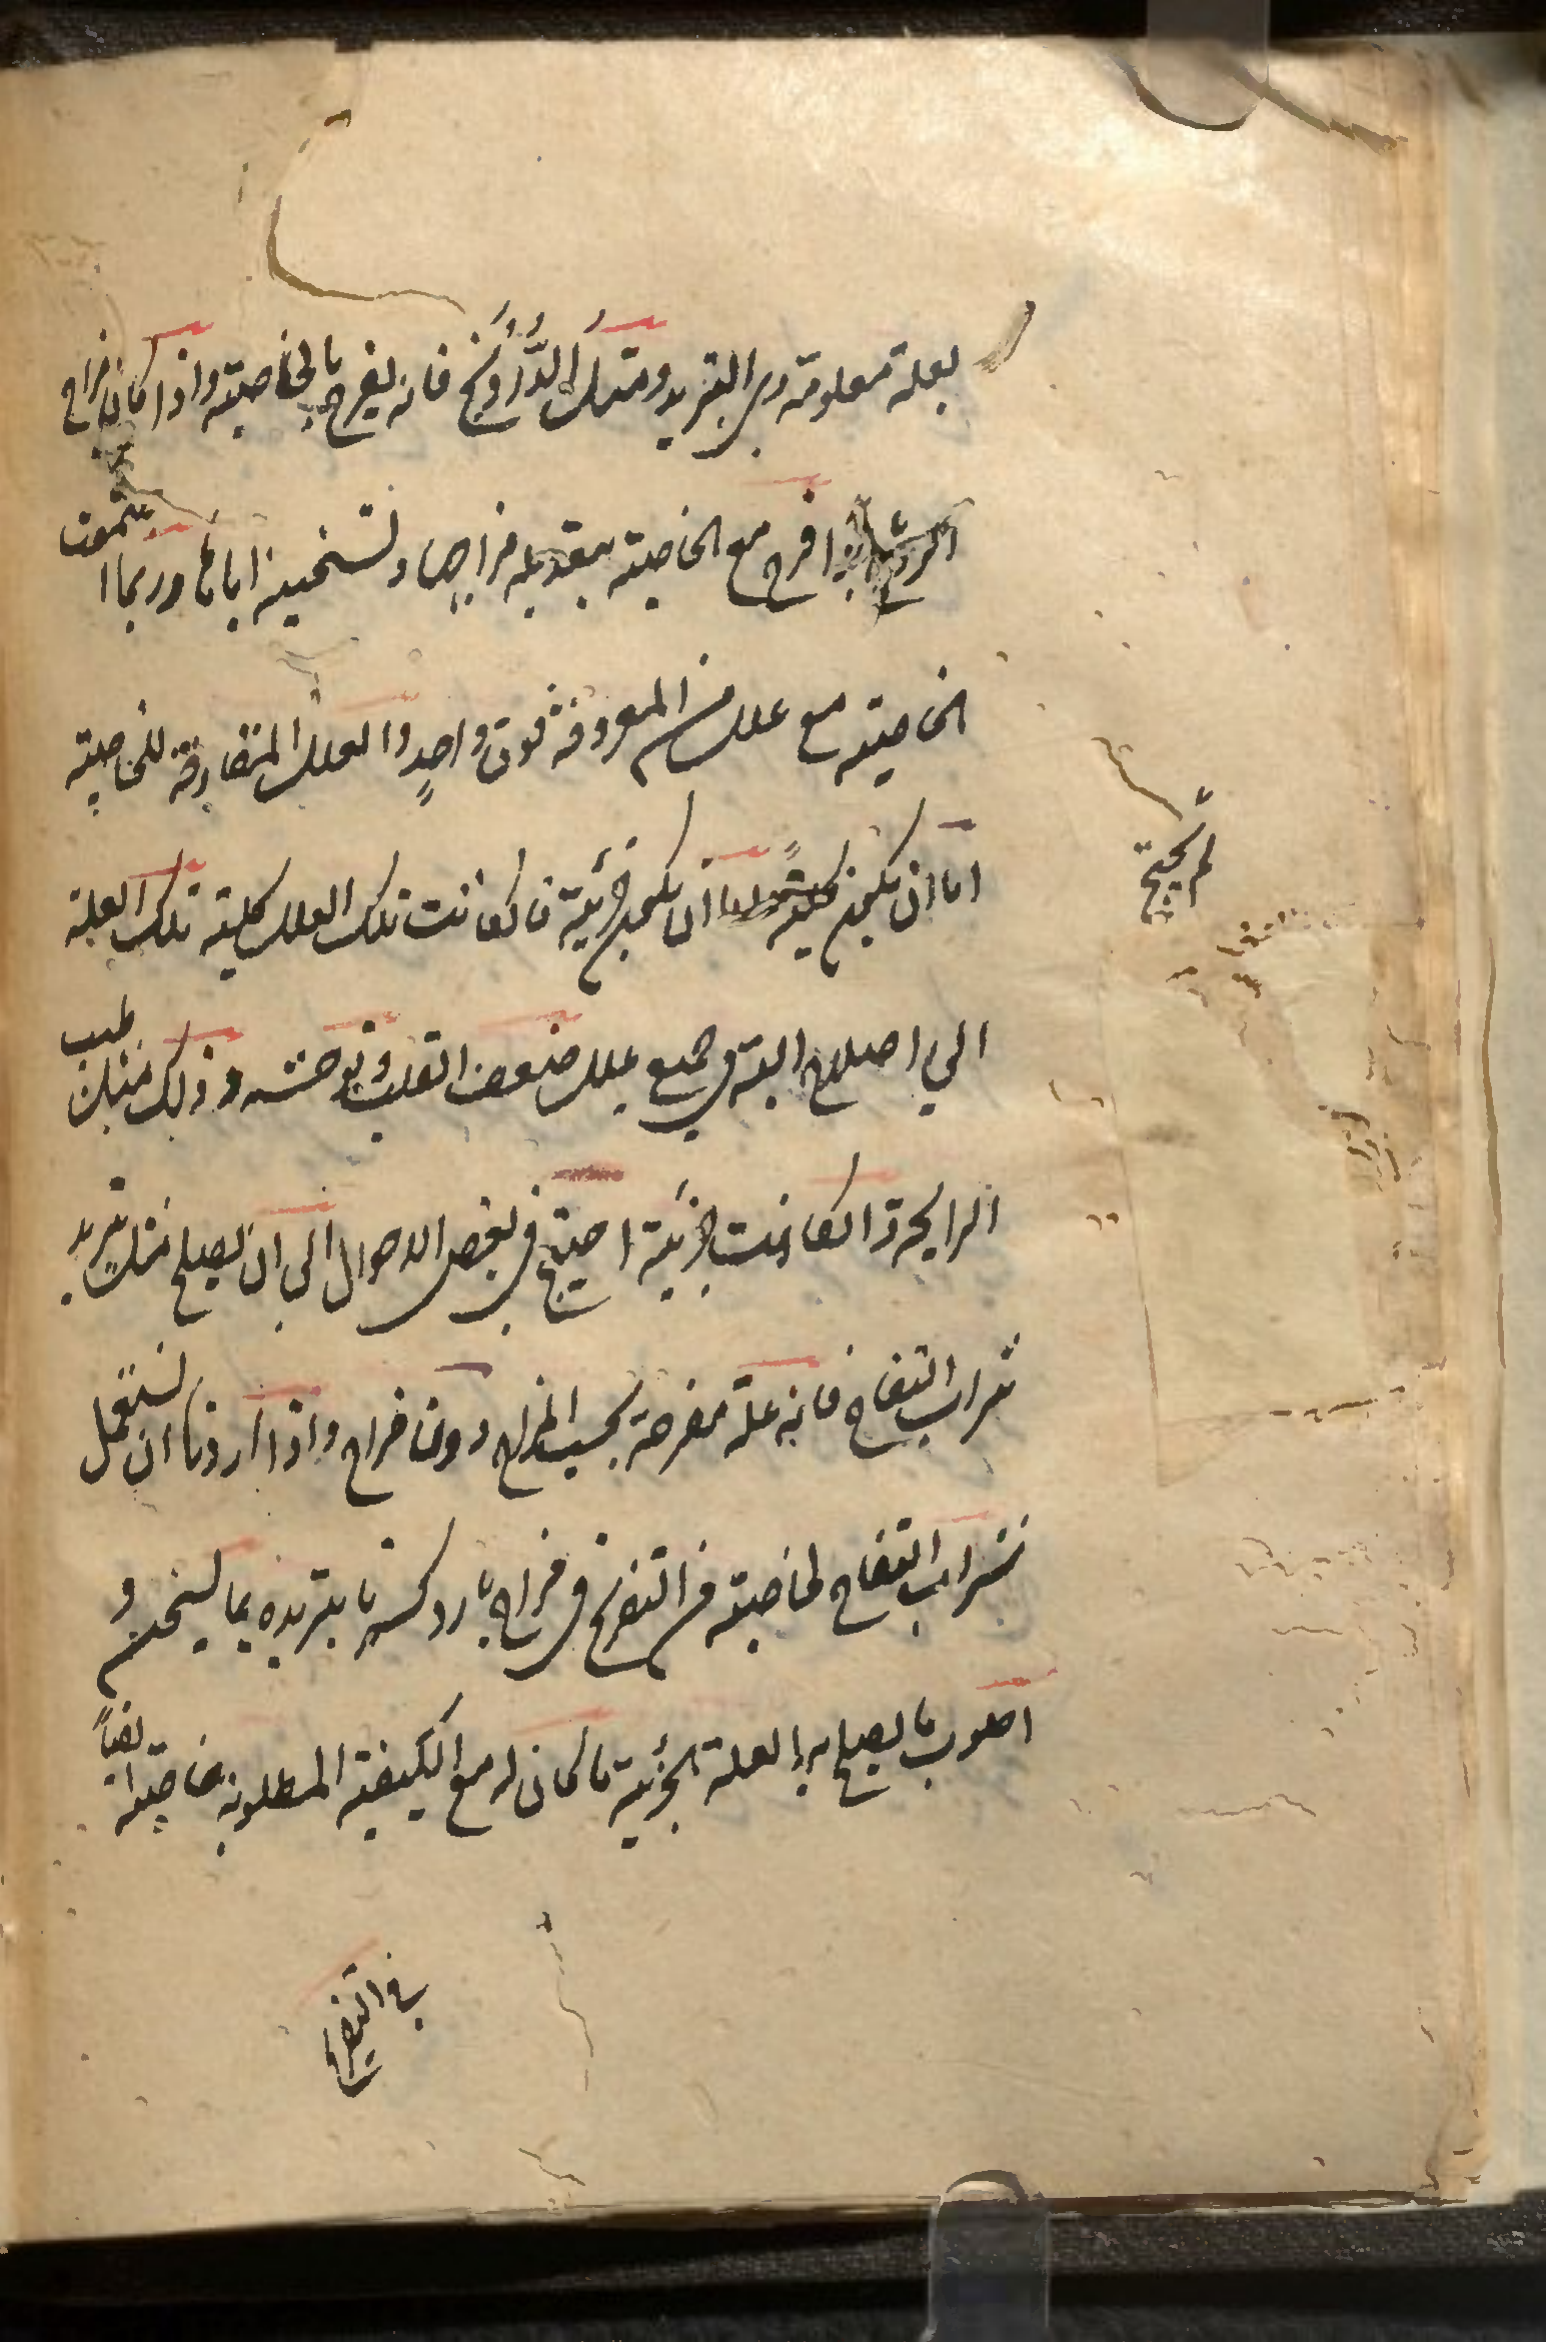 بعلة معلومة وهى التبريد ومثل الدَّرُونج فانه يفرح بالخاصيته واذا كان مزاج
الروح باردا فرح مع الخاصيته بتعديله مزاجها وتسخينه اياها وربما اجتمعت
الخاصيته مع علل من المعروفة فوق واحدٍ والعلل المتقارنة للخاصيته
اما ان يكون كليةً واما ان يكون جزئية فان كانت تلك العلل كلية تلك العلة
لم يحتج
الي اصلاح البتة في جميع علل ضعف القلب وتوحشه وذلك مثل طيب
الرايحة وان كانت جزئية احتيج في بعض الاحوال الى ان يصلح مثل تبريد
شراب التفاح فانه علة مفرحة بحسب مزاج دون مزاج واذا اردنا ان نستعمل
شراب التفاح لخاصيته من التفريح في مزاج بارد كسرنا تبريده بما يسخن و
اصلوب ما يصلح به العلة الجزئية ما كان له مع الكيفية المطلوبة خاصيته ايضاً
في التفريح